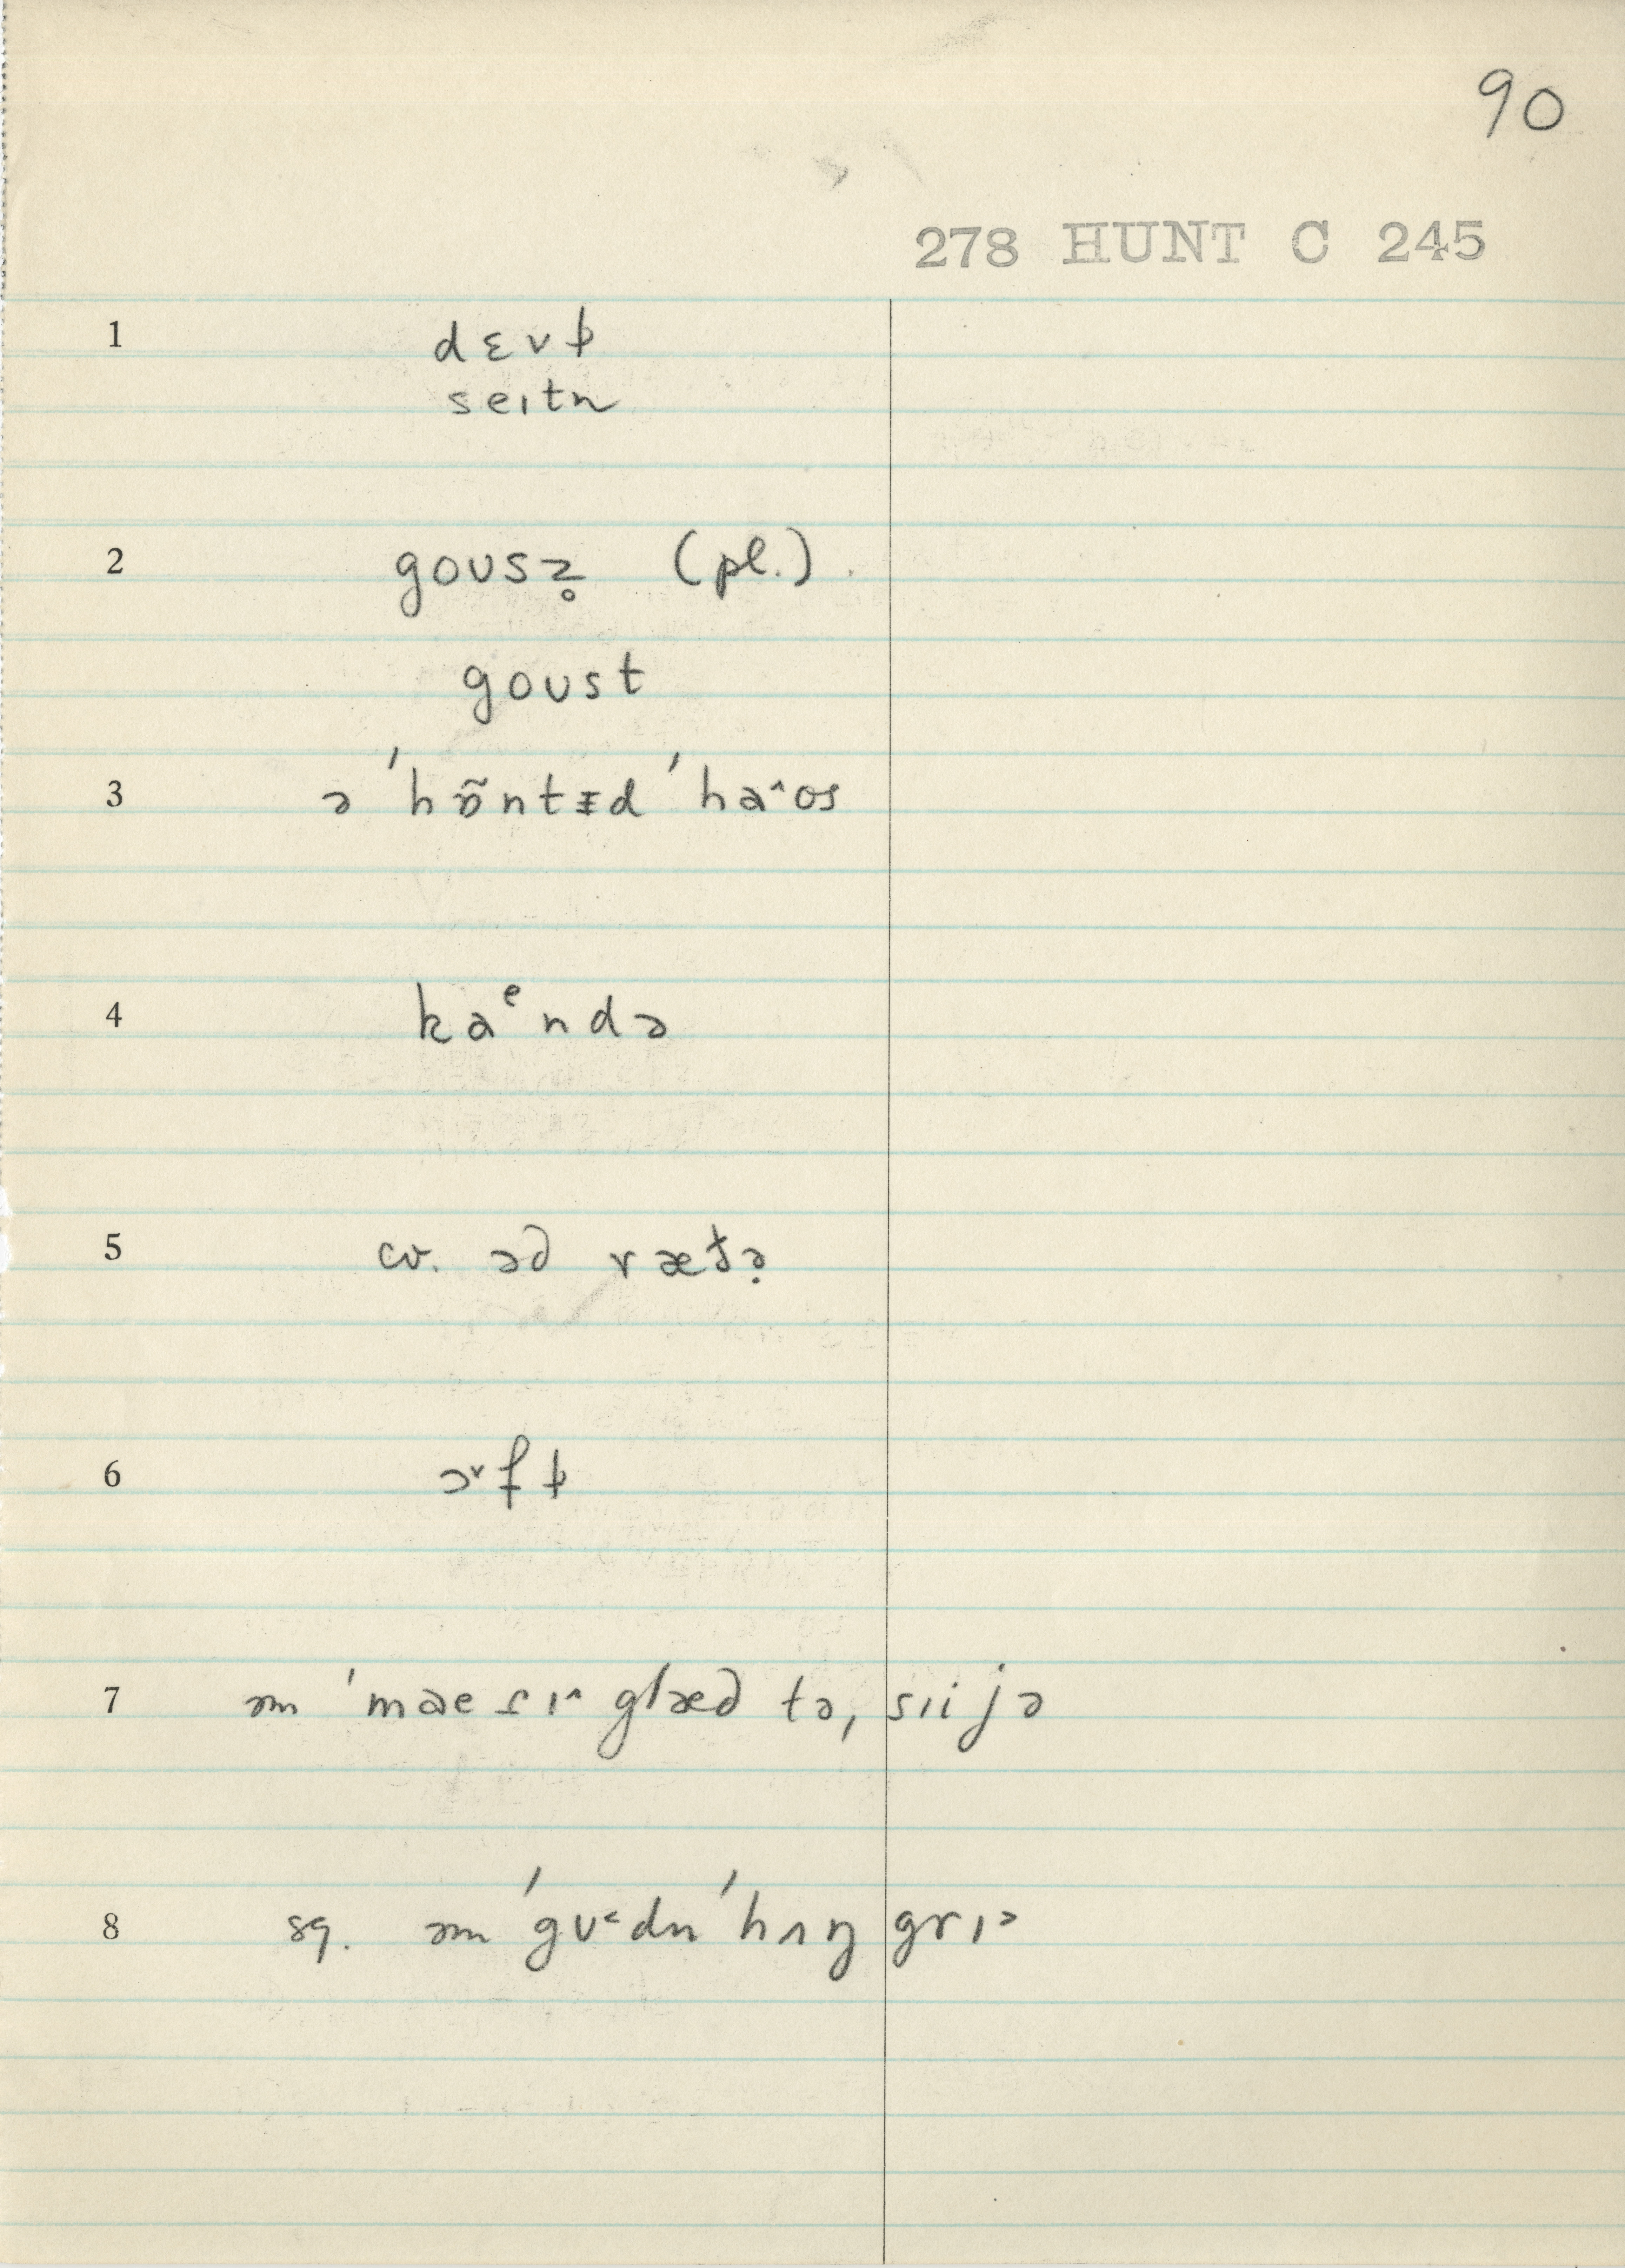 90
278 HUNT C 245
1 dɛvɫ
seɪtn
2 goʊsz̥ (pl.)
goʊst
3 ə ˈhɒ̃ntɪd ˈha^os
4 kaᵉndə
5 cv. əd ræt̬ə̣
6 ɔ˅fɫ
7 əm ˈmaeɾɪ^ glæd tə, sɪi jə
8 sq. əm ˈgʊ˂dn ˈhʌŋgrɪᵊ